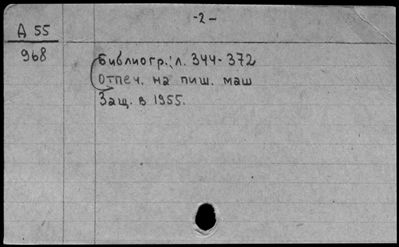 -2-
А 55
968
Библиогр.: л. 344-372
Отпеч. на пиш. маш
Защ. в 1955.